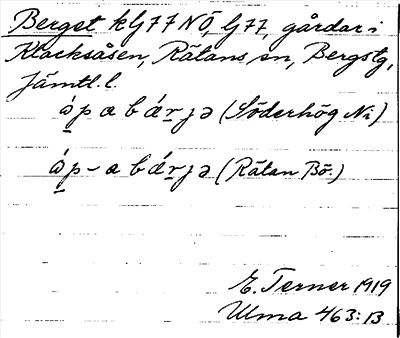 Berget kG77NÖ, G77, gårdar i
Klocksåsen, Rätans sn, Bergs tg,
Jämtl. l.
ǻp a bǽrjə (Söderhög Ni)
ǻp - a bǽrjə (Rätan Bö.)
E. Terner 1919
Ulma 463:13